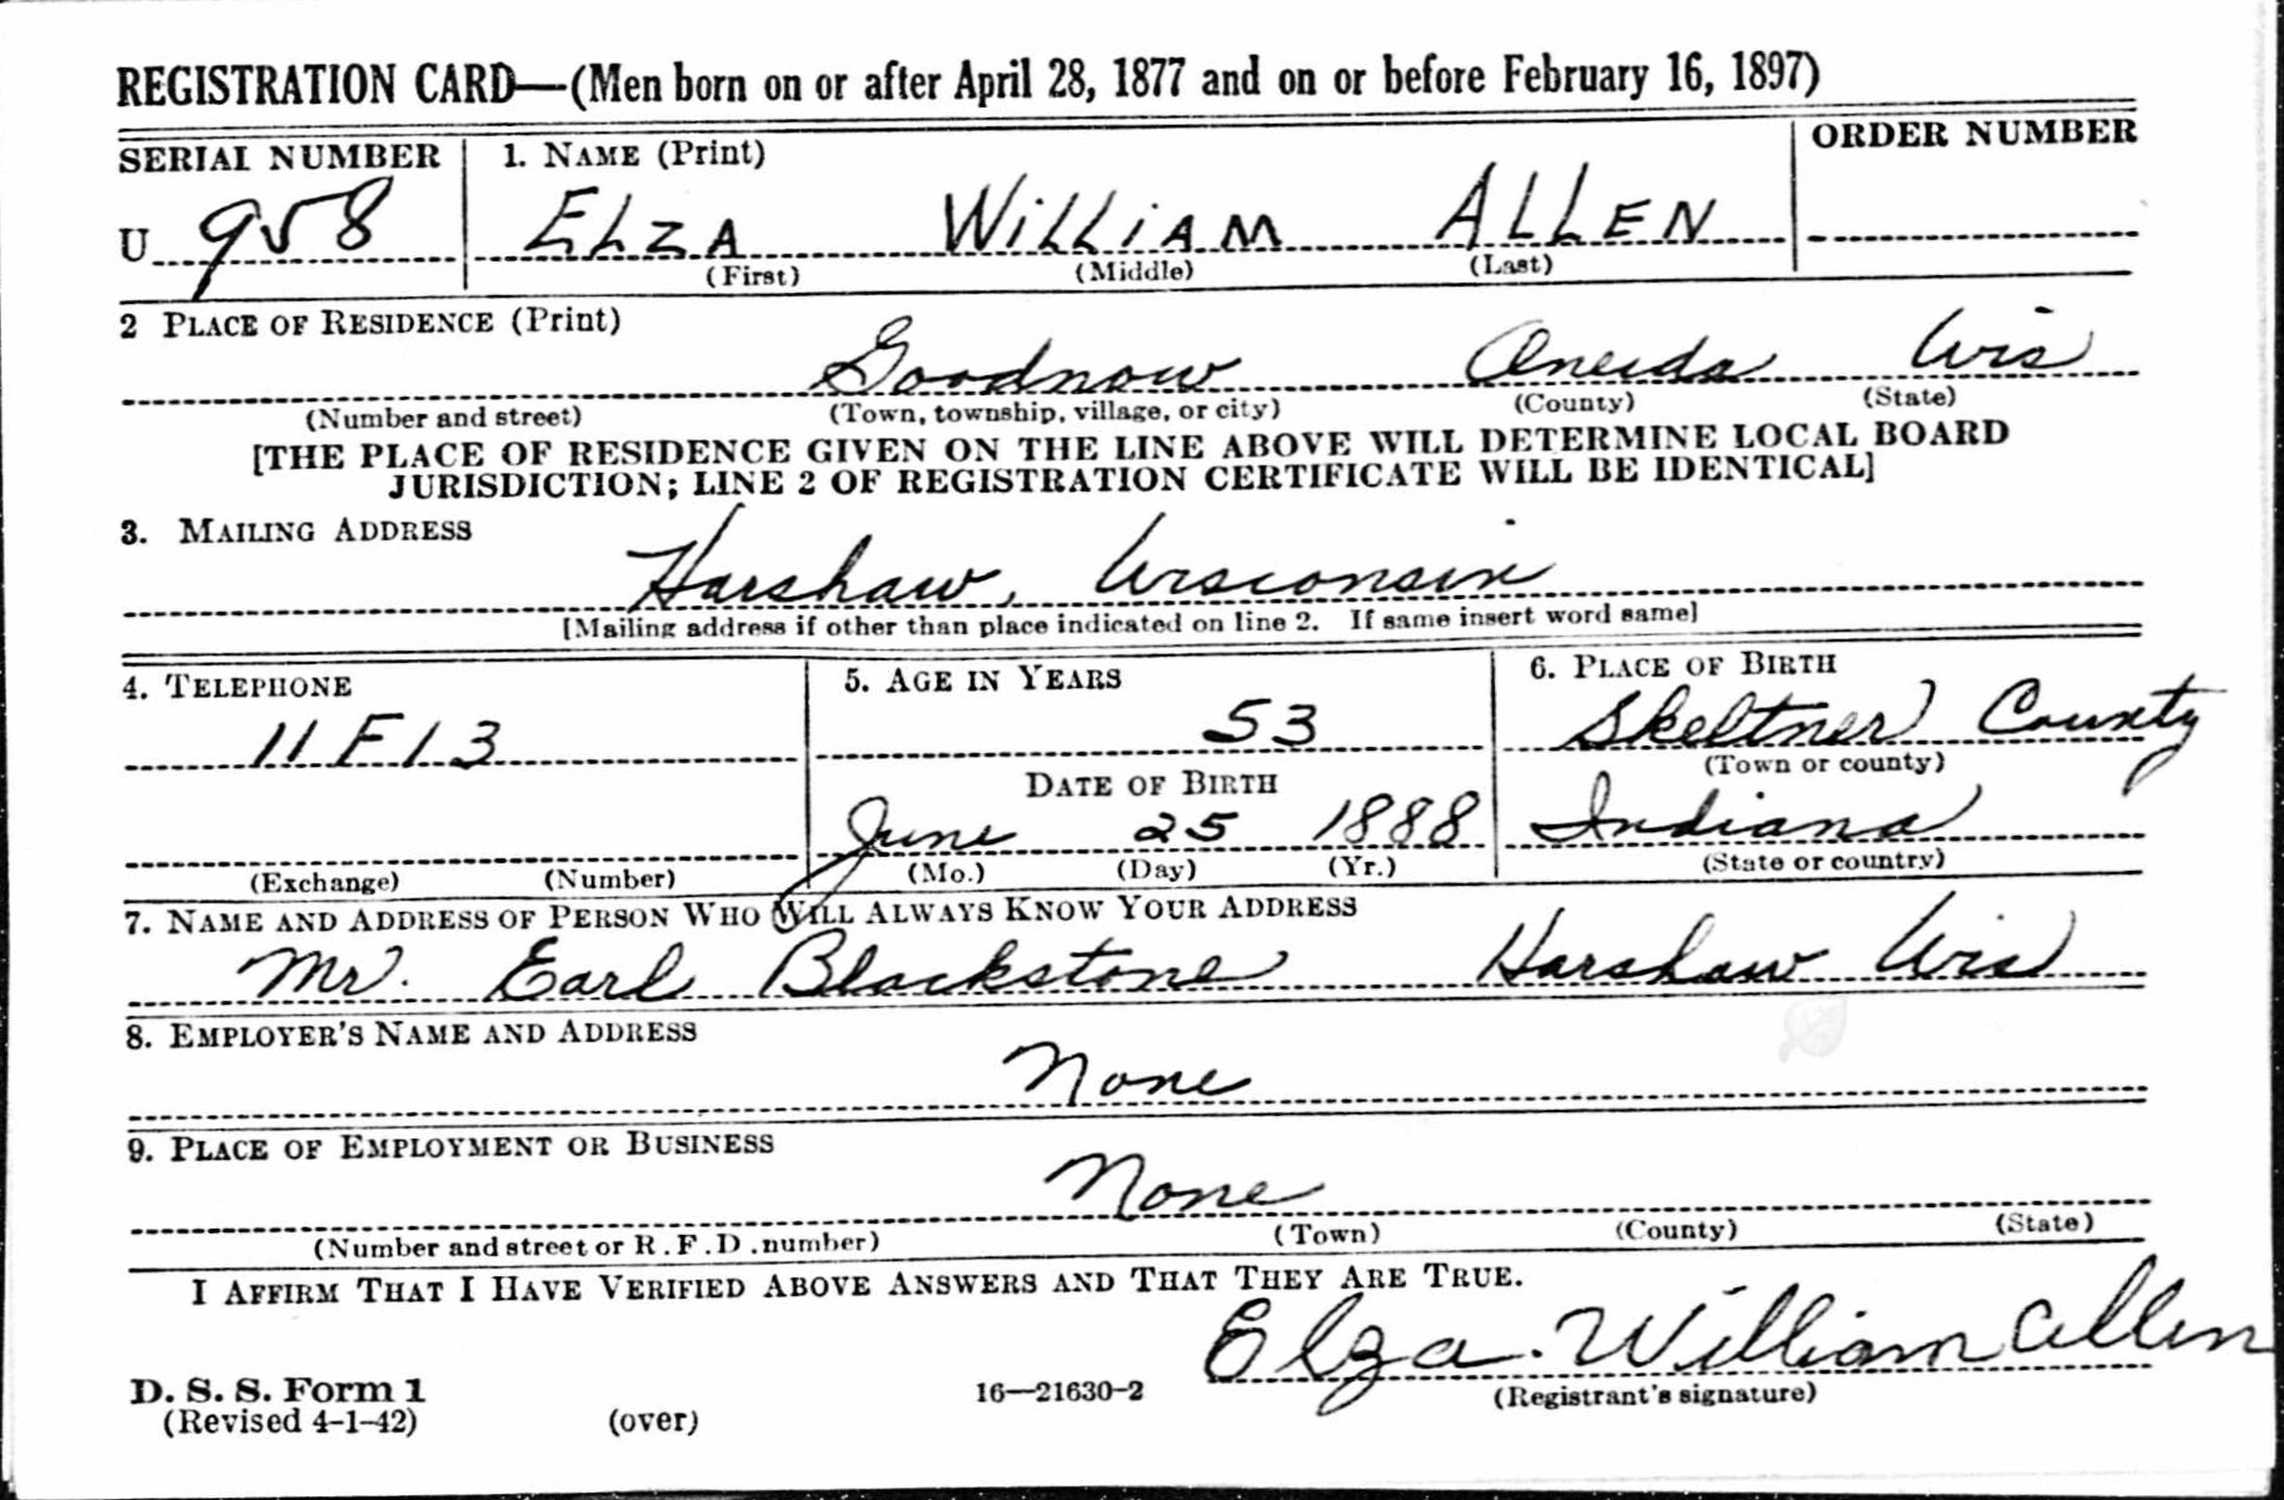 REGISTRATION CARD—(Men born on or after April 28, 1877 and on or before February 16, 1897)
SERIAL NUMBER 1. NAME (Print) ORDER NUMBER
U 958 ELZA WILLIAM ALLEN
(First) (Middle) (Last)
2 PLACE OF RESIDENCE (Print)
Goodnow Oneida Wis
(Number and street) (Town, township, village, or city) (County) (State)
[THE PLACE OF RESIDENCE GIVEN ON THE LINE ABOVE WILL DETERMINE LOCAL BOARD
JURISDICTION; LINE 2 OF REGISTRATION CERTIFICATE WILL BE IDENTICAL]
3. MAILING ADDRESS
Harshaw, Wisconsin
[Mailing address if other than place indicated on line 2. If same insert word same]
4. TELEPHONE 5. AGE IN YEARS 6. PLACE OF BIRTH
11 F 13 53 Skeltner County
(Town or county)
DATE OF BIRTH
June 25 1888 Indiana
(Exchange) (Number) (Mo.) (Day) (Yr.) (State or country)
7. NAME AND ADDRESS OF PERSON WHO WILL ALWAYS KNOW YOUR ADDRESS
Mr. Earl Blackstone Harshaw Wis
8. EMPLOYER'S NAME AND ADDRESS
None
9. PLACE OF EMPLOYMENT OR BUSINESS
None
(Number and street or R.F.D. number) (Town) (County) (State)
I AFFIRM THAT I HAVE VERIFIED ABOVE ANSWERS AND THAT THEY ARE TRUE.
Elza. William Allen
D. S. S. Form 1 16—21630-2 (Registrant's signature)
(Revised 4-1-42) (over)